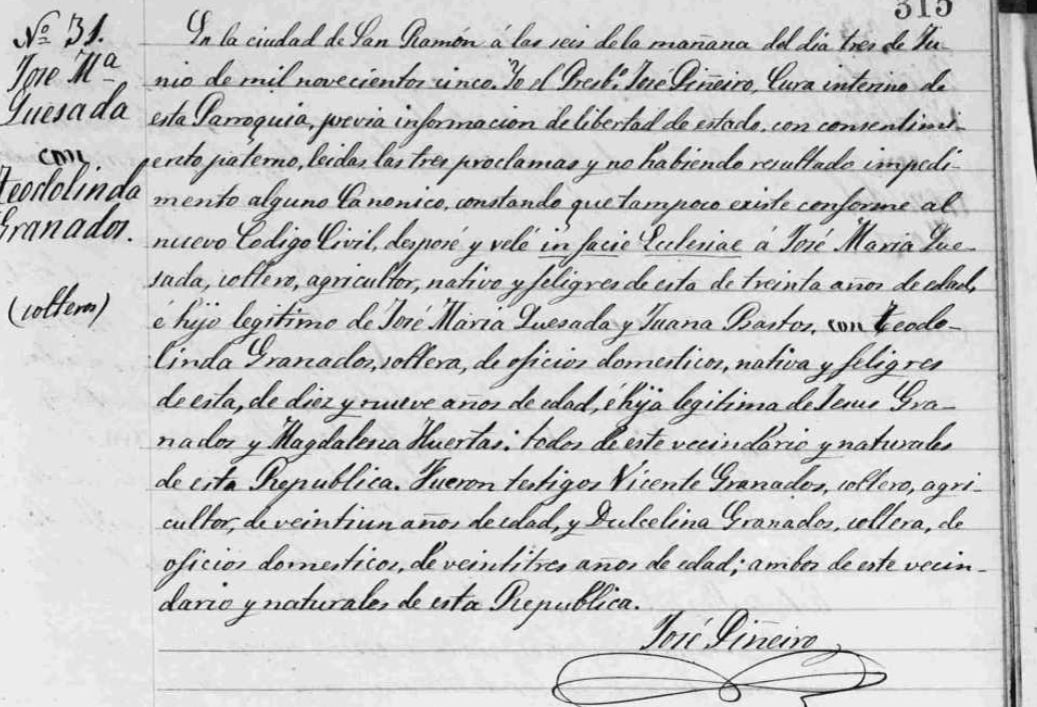 315
Nº 31.
José Mª
Quesada
con
Teodolinda
Granados.
(solteros)
En la ciudad de San Ramón á las seis de la mañana del día tres de Ju-
nio de mil novecientos cinco. Yo el Presbº José Piñeiro, Cura interino de
esta Parroquia, previa informacion de libertad de estado, con consentimi-
ento paterno, leidas las tres proclamas y no habiendo resultado impedi-
mento alguno Canonico, constando que tampoco existe conforme al
nuevo Codigo Civil, desposé y velé in facie Ecclesiae á José María Que-
sada, soltero, agricultor, nativo y feligres de esta de treinta años de edad,
é hijo legitimo de José María Quesada y Juana Bastos, con Teodo-
linda Granados, soltera, de oficios domesticos, nativa y feligres
de esta, de diez y nueve años de edad, é hija legitima de Jesus Gra-
nados y Magdalena Huertas: todos de este vecindario y naturales
de esta Republica. Fueron testigos Vicente Granados, soltero, agri-
cultor, de veintiun años de edad, y Dulcelina Granados, soltera, de
oficios domesticos, de veintitres años de edad; ambos de este vecin-
dario y naturales de esta Republica.
José Piñeiro